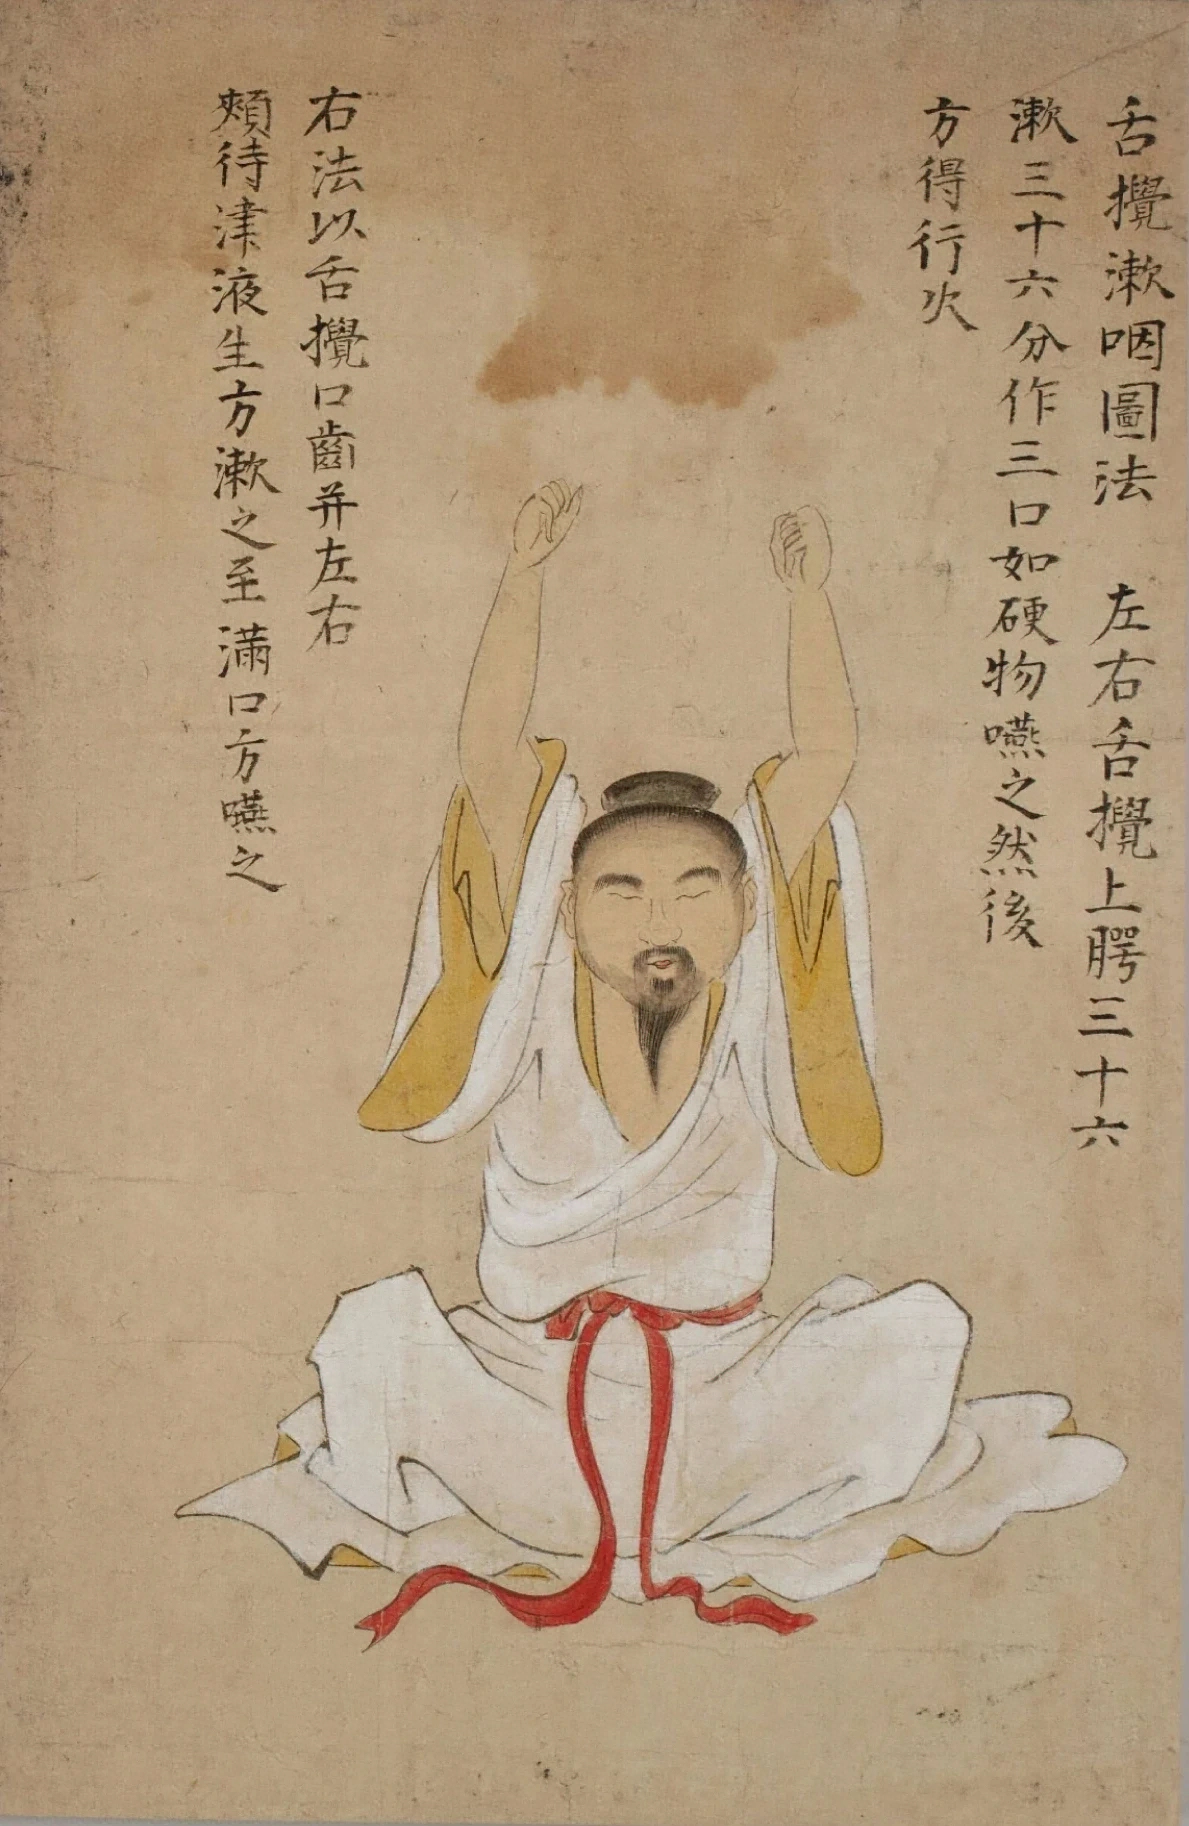 舌攪漱咽圖法 左右舌攪上腭三十六
漱三十六分作三口如硬物嚥之然後
方得行火
右法以舌攪口齒并左右
頰待津液生方漱之至滿口方嚥之